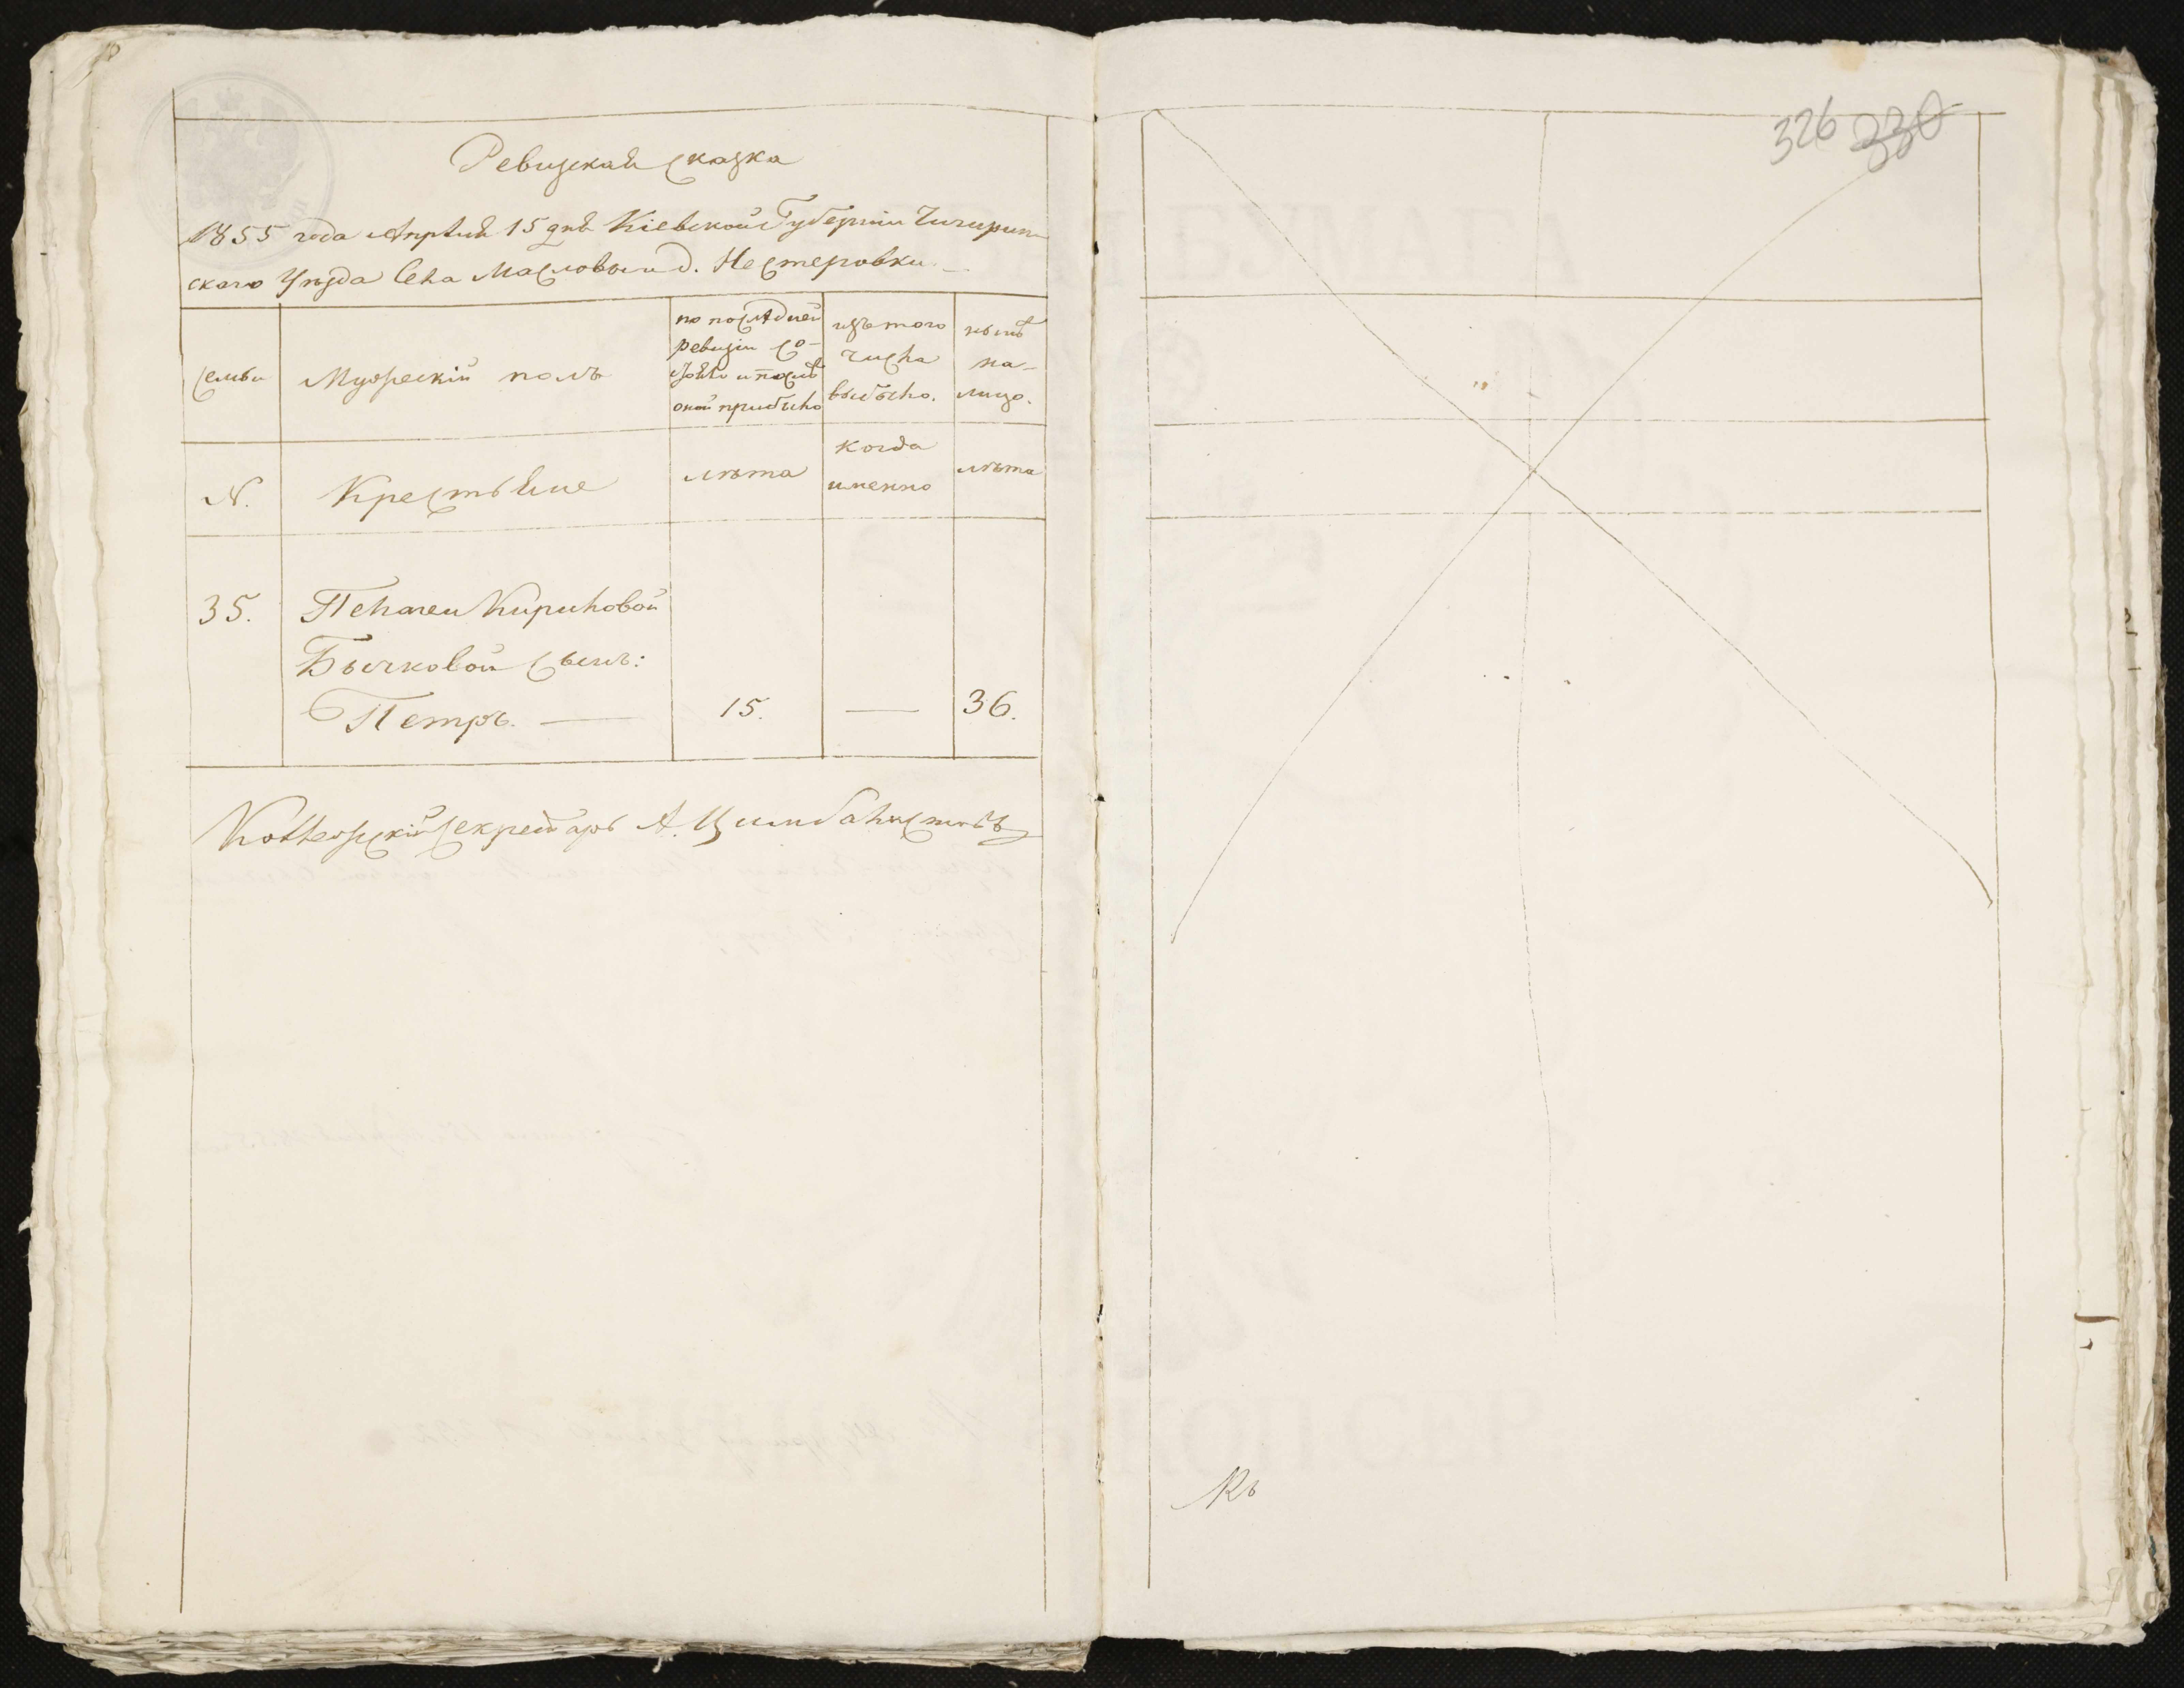 326 330
Ревизская сказка
1855 года Апрѣля 15 дня Кіевской Губерніи Чигирин
скаго Уѣзда Села Масловы и д. Нестеровки
Семьи
Мужескій полъ
по послѣдней
ревизіи со-
стояло и послѣ
оной прибыло
изъ того
числа
выбыло.
нынѣ
на-
лицо.
N.
Крестьяне
лѣта
когда
именно
лѣта
35.
Пелагеи Кириловой
Бычковой сынъ:
Петръ. — 15. — 36.
Коллежскій Секретарь А.
Къ